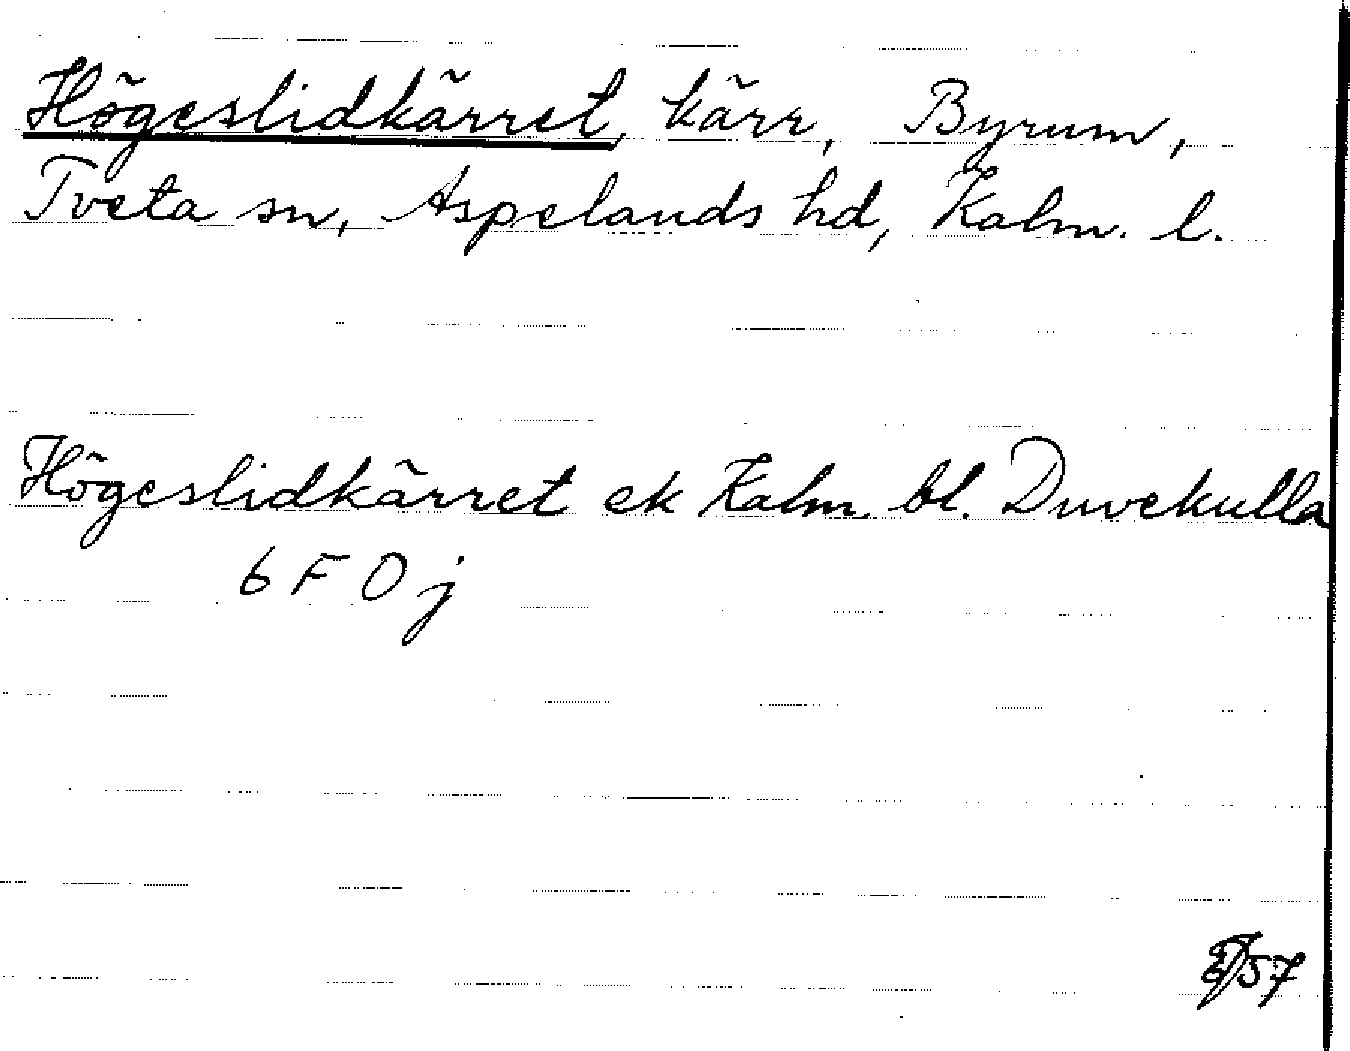 Högeslidkärret, kärr, Byrum,
Tveta sn, Aspelands hd, Kalm. l.
Högeslidkärret ek Kalm. bl. Duvekulla
6 F 0 j
57